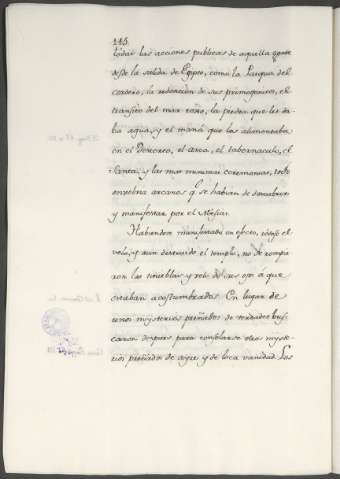 145
todas las acciones publicas de aquella gente
desde la salida de Egipto, como la Pasqua del
cordero, la redencion de sus primogenitos, el
transito del mar roxo, la piedra que les da-
ba agua, y el maná que los alimentaba
en el Desierto, el arca, el tabernaculo, el
Santa, y las mas minimas ceremonias, todo
envolvia arcanos q.e se habian de descubrir
y manifestar por el Mesias.
Habiendose manifestado en efecto, rasgo el
velo, y aun destruido el templo, no de
ron las tinieblas y velo de sus ojos a que
estaban acostumbrados. En lugar de
unos mysterios preñados de verdades bus-
caron despues para consolarse otros myste-
rios preñados de ayre y de loca vanidad. Los